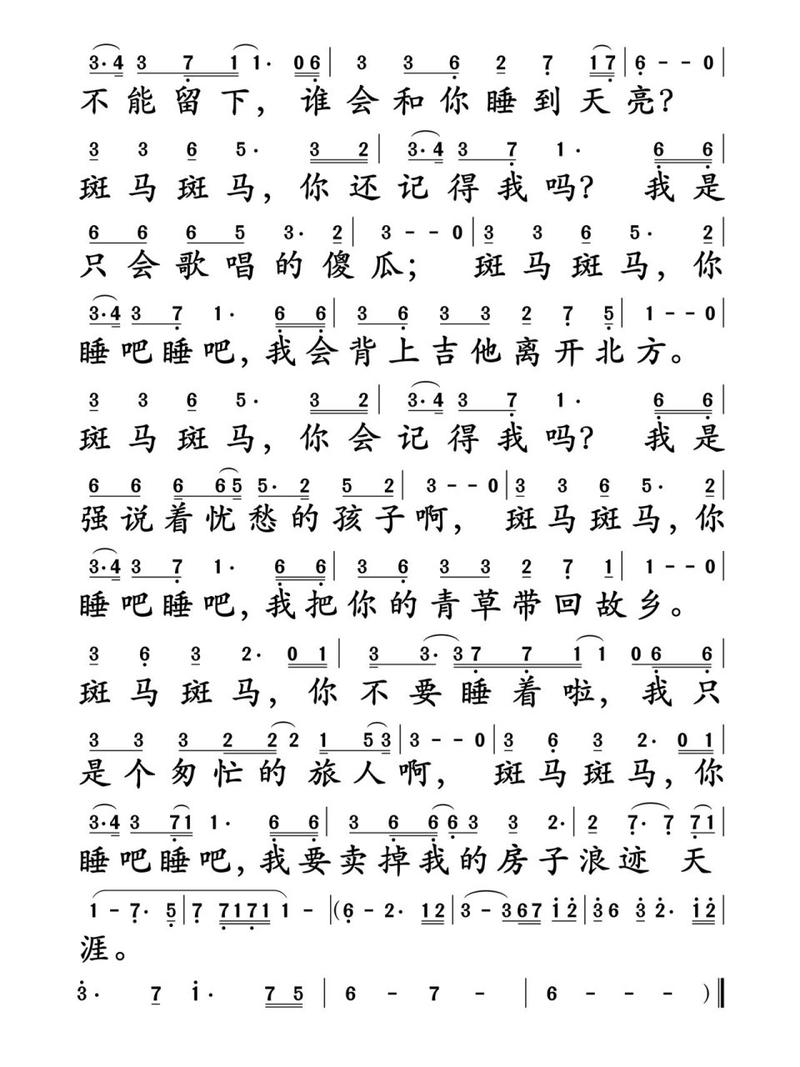 3·4 3 7 1 1· 06 | 3 3 6 2 7 17 | 6 - - 0 |
不能留下，谁会和你睡到天亮？
3 3 6 5· 3 2 | 3·4 3 7 1· 6 6 |
斑马斑马，你还记得我吗？我是
6 6 6 5 3· 2 | 3 - - 0 | 3 3 6 5· 2 |
只会歌唱的傻瓜；斑马斑马，你
3·4 3 7 1· 6 6 | 3 6 3 3 2 7 5 | 1 - - 0 |
睡吧睡吧，我会背上吉他离开北方。
3 3 6 5· 3 2 | 3·4 3 7 1· 6 6 |
斑马斑马，你会记得我吗？我是
6 6 6 65 5· 2 5 2 | 3 - - 0 | 3 3 6 5· 2 |
强说着忧愁的孩子啊，斑马斑马，你
3·4 3 7 1· 6 6 | 3 6 3 3 2 7 1 | 1 - - 0 |
睡吧睡吧，我把你的青草带回故乡。
3 6 3 2· 0 1 | 3 3· 3 7 7 1 1 0 6 6 |
斑马斑马，你不要睡着啦，我只
3 3 3 2 2 2 1 5 3 | 3 - - 0 | 3 6 3 2· 0 1 |
是个匆忙的旅人啊，斑马斑马，你
3·4 3 71 1· 6 6 | 3 6 6 6 3 3 2· | 2 7· 7· 71 |
睡吧睡吧，我要卖掉我的房子浪迹天
1 - 7· 5 | 7 7171 1 - | (6 - 2· 12 | 3 - 367 12 | 36 3 2· 12 |
涯。
3· 7 1· 7 5 | 6 - 7 - | 6 - - - )